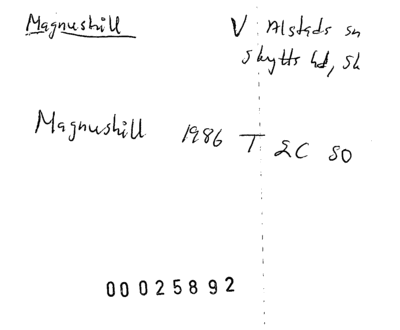 Magnushill
V Alstads sn
Skytts hd, Sk
Magnushill 1986 T 2C SO
00025892